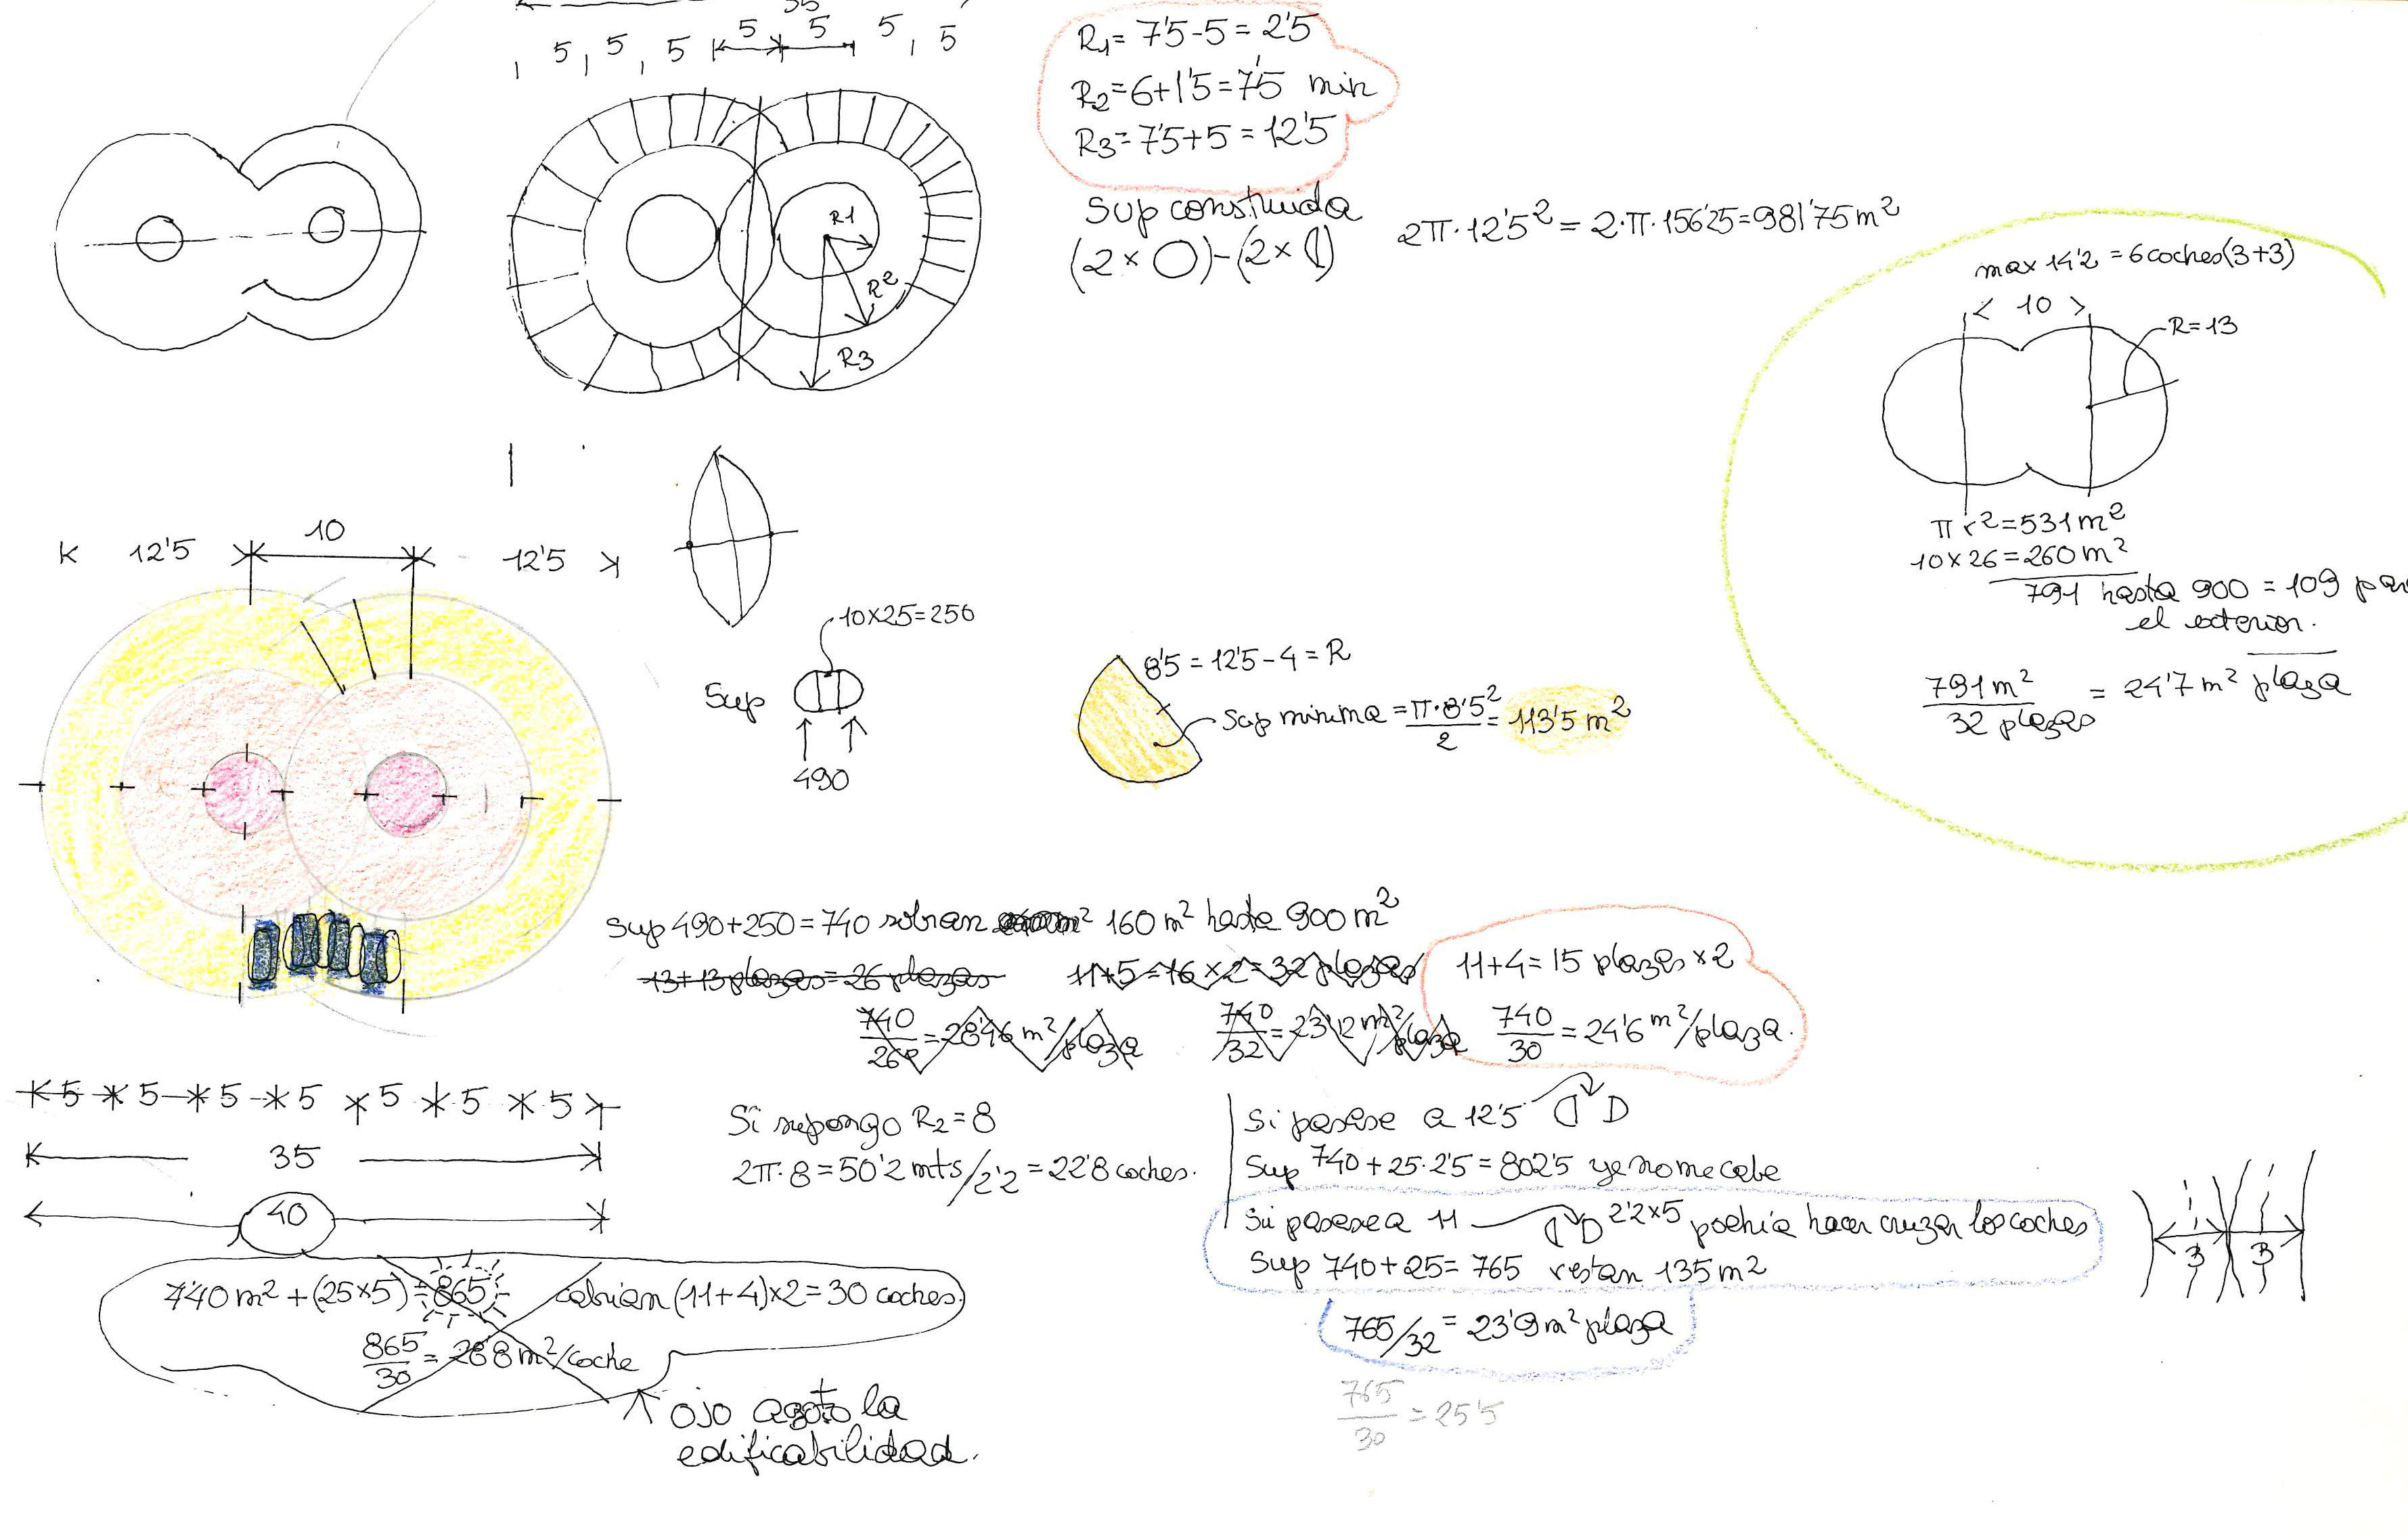 35
5 , 5 , 5 5 5 5 , 5
R1= 7'5-5 = 2'5
R2=6+1'5=7'5 min
R3=7'5+5=12'5
Sup construida
(2× )-(2× )
2π·12'5²=2·π·156'25=981'75m²
R1
R2
R3
max 14'2 = 6 coches(3+3)
10
R=13
πr²=531m²
10×26=260m²
791 hasta 900 = 109 par
el exterior.
791m²
32 plazas
= 24'7 m² plaza
12'5 10 12'5
10×25=250
Sup
490
8'5=12'5-4=R
Sup minima=π·8'5²
2
= 113'5 m²
Sup 490+250=740 sobran m² 160m² hasta 900m²
13+13 plazas=26 plazas
11+5=16×2=32 plazas
11+4=15 plazas×2
740
26
=28'46 m²/plaza
740
32
=23'12 m²/plaza
740
30
=24'6 m²/plaza.
5 5 5 5 5 5 5
35
40
Si supongo R2=8
2π·8=50'2mts/2'2=22'8 coches.
Si pasase a 12'5
Sup 740+25·2'5=802'5 ya no me cabe
Si pasase a 11 2'2×5 podría hacer cruzar los coches
Sup 740+25=765 restan 135m²
765/32=23'9m² plaza
765
30
=25'5
3 3
740m²+(25×5)=865 cabrían (11+4)×2=30 coches.
865
30
=28'8m²/coche
ojo agoto la
edificabilidad.